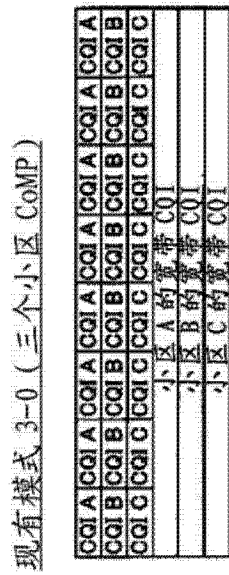 现有模式 3-0 (三个小区 CoMP)
CQI A CQI A CQI A CQI A CQI A CQI A CQI A CQI A CQI A
CQI B CQI B CQI B CQI B CQI B CQI B CQI B CQI B CQI B
CQI C CQI C CQI C CQI C CQI C CQI C CQI C CQI C CQI C
小区 A 的宽带 CQI
小区 B 的宽带 CQI
小区 C 的宽带 CQI